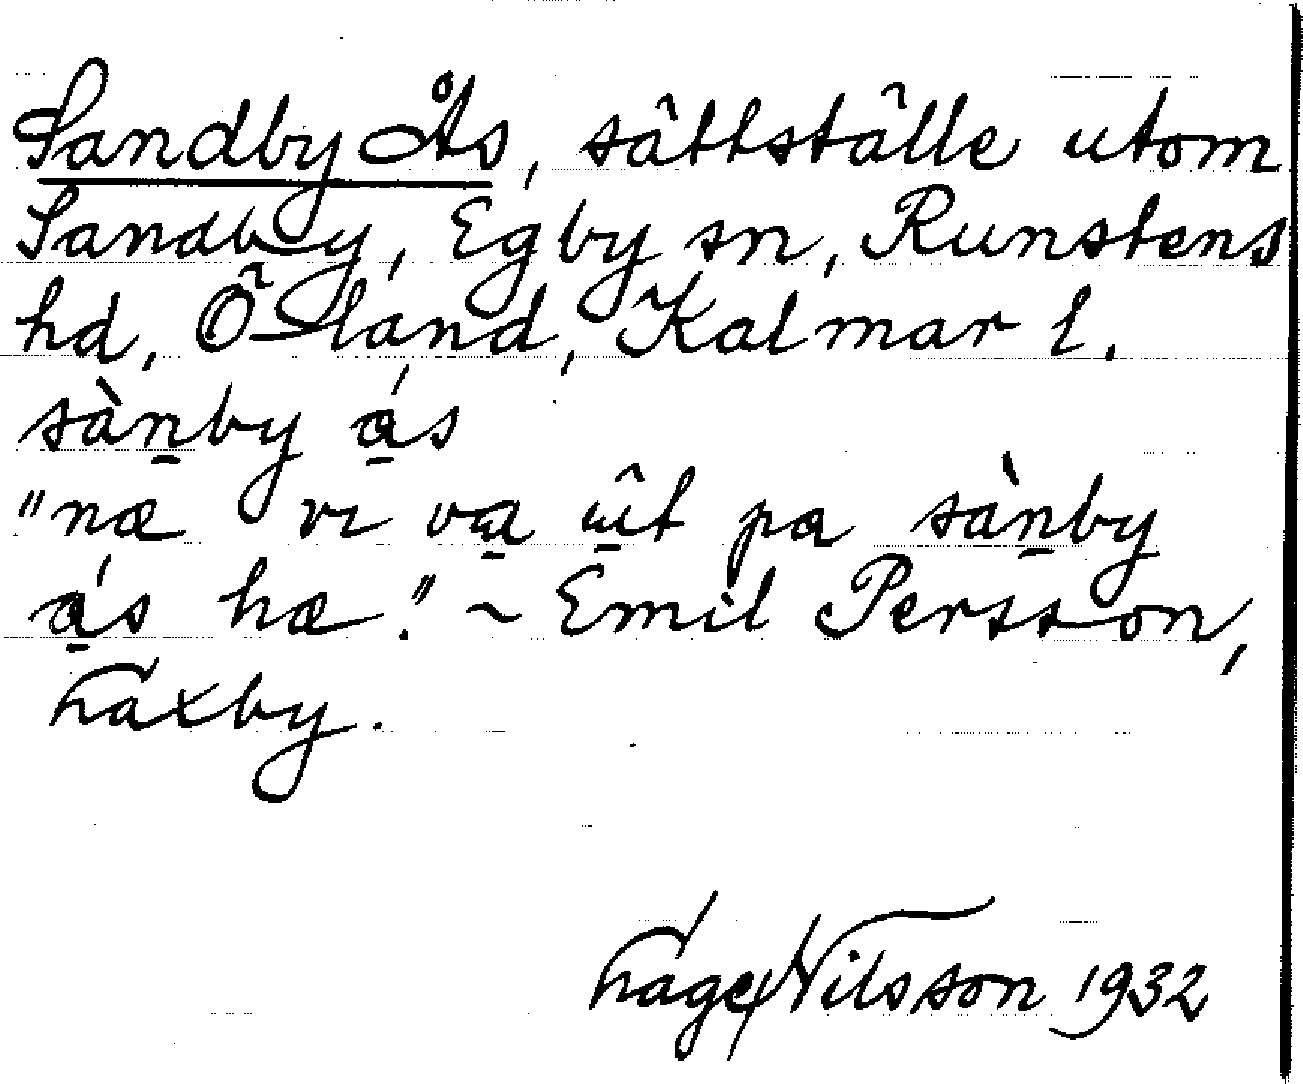 Sandby Ås, sättställe utom
Sandby, Egby sn, Runstens
hd, Öland, Kalmar l.
sàn̲by á̲s
"næ vi va̲ û̲t pa sàn̲by
á̲s hæ." ~ Emil Persson,
Laxby.
Låge Nilsson 1932